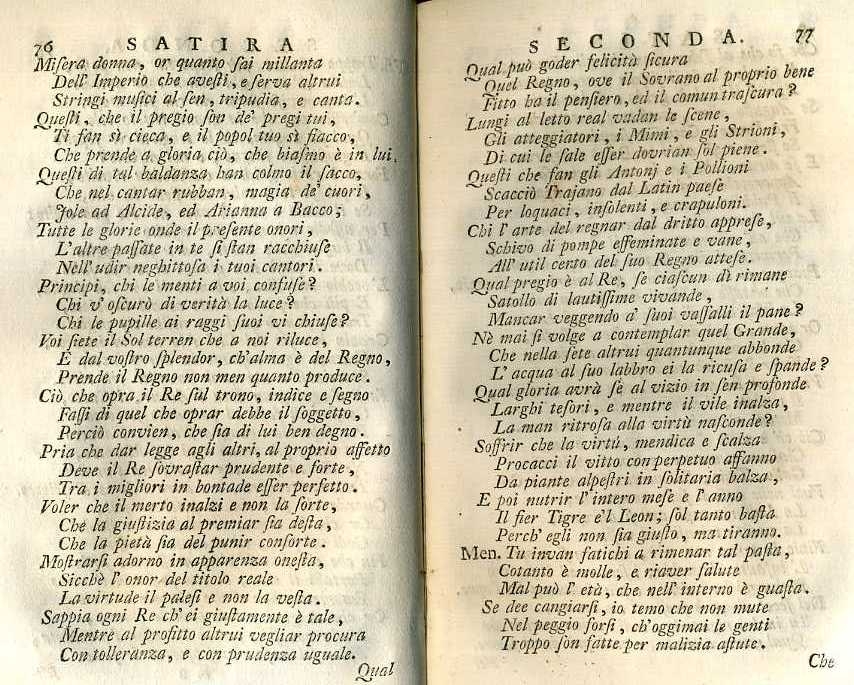 76 SATIRA
Miſera donna, or quanto ſai millanta
Dell' Imperio che aveſti, e ſerva altrui
Stringi muſici al ſen, tripudia, e canta.
Queſti, che il pregio ſon de' pregi tui,
Ti fan sì cieca, e il popol tuo sì fiacco,
Che prende a gloria ciò, che biaſmo è in lui.
Queſti di tal baldanza han colmo il ſacco,
Che nel cantar rubban, magia de' cuori,
Jole ad Alcide, ed Arianna a Bacco;
Tutte le glorie onde il preſente onori,
L'altre paſſate in te ſi ſtan racchiuſe
Nell' udir neghittoſa i tuoi cantori.
Principi, chi le menti a voi confuſe?
Chi v' oſcurò di verità la luce?
Chi le pupille ai raggi ſuoi vi chiuſe?
Voi ſiete il Sol terren che a noi riluce,
E dal voſtro ſplendor, ch'alma è del Regno,
Prende il Regno non men quanto produce.
Ciò che opra il Re ſul trono, indice e ſegno
Faſſi di quel che oprar debbe il ſoggetto,
Perciò convien, che ſia di lui ben degno.
Pria che dar legge agli altri, al proprio affetto
Deve il Re ſovraſtar prudente e forte,
Tra i migliori in bontade eſſer perfetto.
Voler che il merto inalzi e non la ſorte,
Che la giuſtizia al premiar ſia deſta,
Che la pietà ſia del punir conſorte.
Moſtrarſi adorno in apparenza oneſta,
Sicchè l' onor del titolo reale
La virtude il paleſi e non la veſta.
Sappia ogni Re ch' ei giuſtamente è tale,
Mentre al profitto altrui vegliar procura
Con tolleranza, e con prudenza uguale.
Qual
SECONDA. 77
Qual può goder felicità ſicura
Quel Regno, ove il Sovrano al proprio bene
Fitto ha il penſiero, ed il comun traſcura?
Lungi al letto real vadan le ſcene,
Gli atteggiatori, i Mimi, e gli Strioni,
Di cui le ſale eſſer dovrian ſol piene.
Queſti che fan gli Antonj e i Pollioni
Scacciò Trajano dal Latin paeſe
Per loquaci, inſolenti, e crapuloni.
Chi l' arte del regnar dal dritto appreſe,
Schivo di pompe effeminate e vane,
All' util cento del ſuo Regno atteſe.
Qual pregio è al Re, ſe ciaſcun dì rimane
Satollo di lautiſſime vivande,
Mancar veggendo a' ſuoi vaſſalli il pane?
Nè mai ſi volge a contemplar quel Grande,
Che nella ſete altrui quantunque abbonde
L' acqua al ſuo labbro ei la ricuſa e ſpande?
Qual gloria avrà ſe al vizio in ſen profonde
Larghi teſori, e mentre il vile inalza,
La man ritroſa alla virtù naſconde?
Soffrir che la virtù, mendica e ſcalza
Procacci il vitto con perpetuo affanno
Da piante alpeſtri in ſolitaria balza,
E poi nutrir l' intero meſe e l' anno
Il fier Tigre e'l Leon; ſol tanto baſta
Perch' egli non ſia giuſto, ma tiranno.
Men. Tu invan fatichi a rimenar tal paſta,
Cotanto è molle, e riaver ſalute
Mal può l' età, che nell' interno è guaſta.
Se dee cangiarſi, io temo che non mute
Nel peggio forſi, ch'oggimai le genti
Troppo ſon fatte per malizia aſtute.
Che